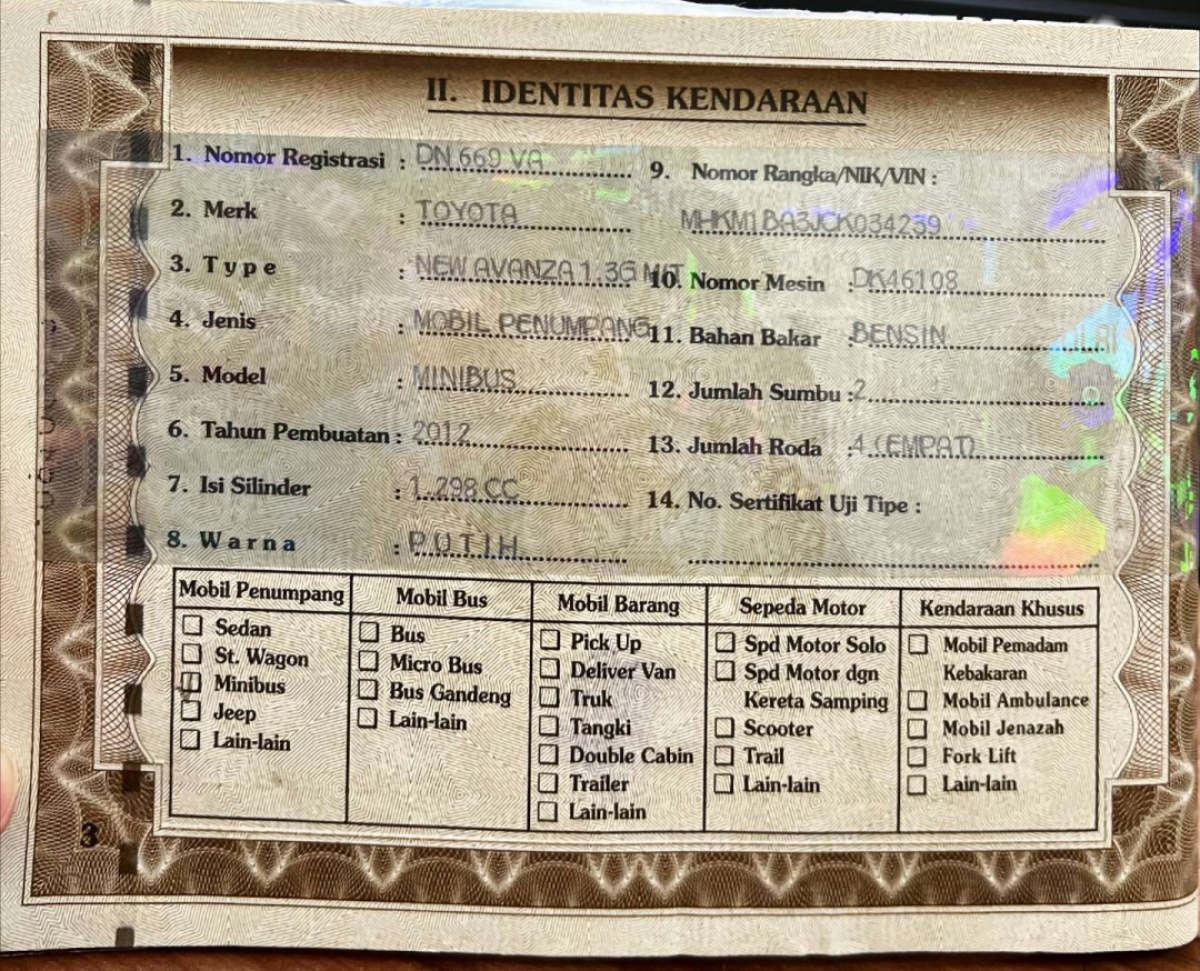 II. IDENTITAS KENDARAAN
1. Nomor Registrasi : DN 669 VA
2. Merk : TOYOTA
3. Type : NEW AVANZA 1.3G M/T
4. Jenis : MOBIL PENUMPANG
5. Model : MINIBUS
6. Tahun Pembuatan : 2012
7. Isi Silinder : 1.298 CC
8. Warna : PUTIH
9. Nomor Rangka/NIK/VIN :
MHKM1BA3JCK034239
10. Nomor Mesin : DK46108
11. Bahan Bakar : BENSIN
12. Jumlah Sumbu : 2
13. Jumlah Roda : 4 (EMPAT)
14. No. Sertifikat Uji Tipe :
Mobil Penumpang
Sedan
St. Wagon
Minibus
Jeep
Lain-lain
Mobil Bus
Bus
Micro Bus
Bus Gandeng
Lain-lain
Mobil Barang
Pick Up
Deliver Van
Truk
Tangki
Double Cabin
Trailer
Lain-lain
Sepeda Motor
Spd Motor Solo
Spd Motor dgn
Kereta Samping
Scooter
Trail
Lain-lain
Kendaraan Khusus
Mobil Pemadam
Kebakaran
Mobil Ambulance
Mobil Jenazah
Fork Lift
Lain-lain
3